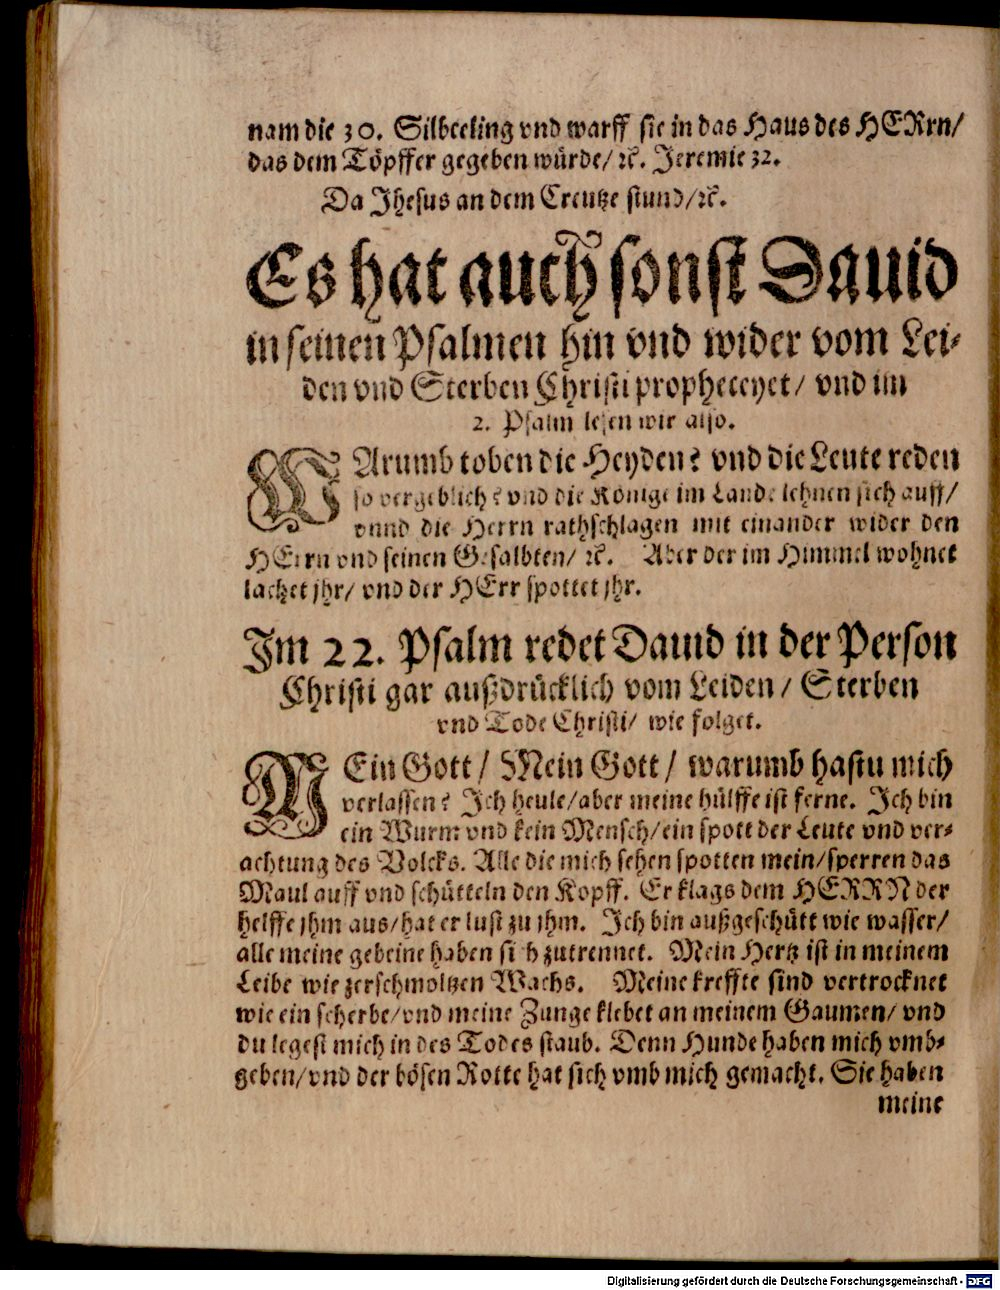 nam die 30. Silbeeling vnd warff sie in das Haus des HERrn/
das dem Töpffer gegeben würde/ ꝛc. Jeremie 32.
Da Jhesus an dem Creutze stund/ꝛc.
Es hat auch sonst Dauid
in seinen Psalmen hin vnd wider vom Lei-
den vnd Sterben Christi propheceyet/ vnd im
2. Psalm lesen wir also.
WArumb toben die Heyden? vnd die Leute reden
so vergeblich? vnd die Könige im Lande lehnen sich auff/
vnnd die Herrn rathschlagen mit einander wider den
HErrn vnd seinen Gesalbten/ ꝛc. Aber der im Himmel wohnet
lachet jhr/ vnd der HErr spottet jhr.
Im 22. Psalm redet Dauid in der Person
Christi gar außdrücklich vom Leiden/ Sterben
vnd Tode Christi/ wie folget.
MEin Gott/ Mein Gott/ warumb hastu mich
verlassen? Ich heule/aber meine hülffe ist ferne. Ich bin
ein Wurm vnd kein Mensch/ein spott der Leute vnd ver-
achtung des Volcks. Alle die mich sehen spotten mein/sperren das
Maul auff vnd schütteln den Kopff. Er klags dem HERRN der
helffe jhm aus/hat er lust zu jhm. Ich bin außgeschütt wie wasser/
alle meine gebeine haben sich zutrennet. Mein Hertz ist in meinem
Leibe wie zerschmoltzen Wachs. Meine kreffte sind vertrocknet
wie ein scherbe/vnd meine Zunge klebet an meinem Gaumen/ vnd
du legest mich in des Todes staub. Denn Hunde haben mich vmb-
geben/vnd der bösen Rotte hat sich vmb mich gemacht. Sie haben
meine
Digitalisierung gefördert durch die Deutsche Forschungsgemeinschaft - DFG